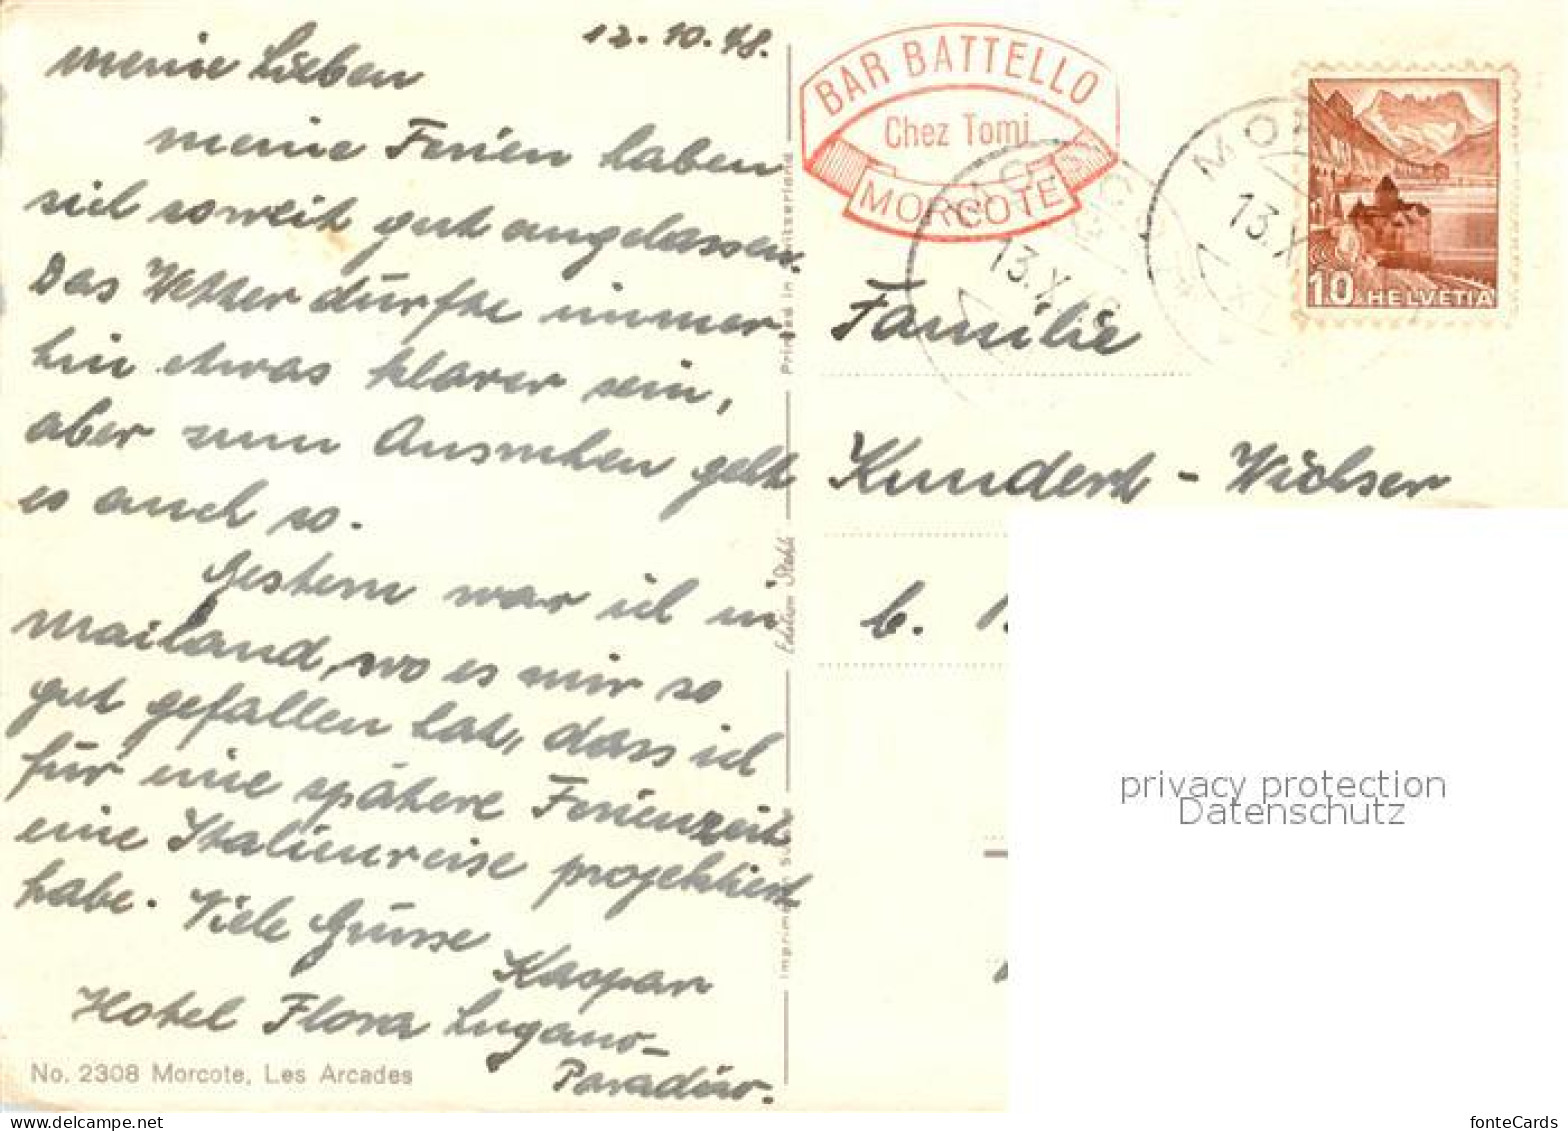 12.10.48.
meine Lieben
meine Ferien haben
sich soweit gut angelassen.
Das Wetter dürfte immer-
hin etwas klarer sein,
aber zum Ausruhen geht
es auch so.
Gestern war ich in
Mailand, wo es mir so
gut gefallen hat, dass ich
für eine spätere Ferienzeit
eine Italienreise projektiert
habe. Viele Grüsse
Kaspar
Hotel Flora Lugano-
Paradiso.
No. 2308 Morcote, Les Arcades
Edition Stehli
BAR BATTELLO
Chez Tomi
MORCOTE
13.X
13.X
10 HELVETIA
Familie
Kundert - Wichser
b.
privacy protection
Datenschutz
fonteCards